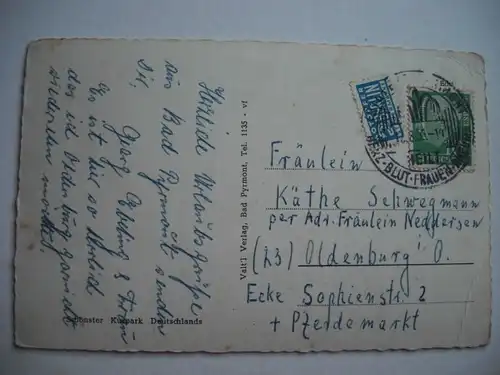 Herzliche Urlaubsgrüße
aus Bad Pyrmont senden
Dir,
Georg Ebeling & Frau
Es ist hier so herrlich
das ich Oldenburg garnicht
wiedersehen möchte!
Schönster Kurpark Deutschlands
Valt'l Verlag, Bad Pyrmont, Tel. 1135 - vf
NOTOPFER
HERZ-BLUT-FRAUEN-
Fräulein
Käthe Schwegmann
per Adr. Fräulein Neddersen
(23) Oldenburg i. O.
Ecke Sophienstr. 2
+ Pferdemarkt